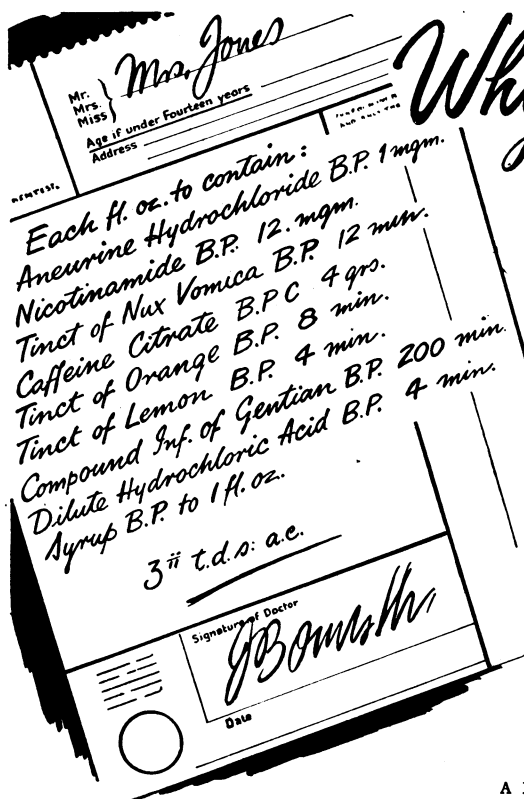 Mr.
Mrs.
Miss
Mrs. Jones
Age if under Fourteen years
Address
Each fl. oz. to contain:
Aneurine Hydrochloride B.P. 1 mgm.
Nicotinamide B.P. 12. mgm.
Tinct of Nux Vomica B.P. 12 min.
Caffeine Citrate B.P C 4 grs.
Tinct of Orange B.P. 8 min.
Tinct of Lemon B.P. 4 min.
Compound Inf. of Gentian B.P. 200 min.
Dilute Hydrochloric Acid B.P. 4 min.
Syrup B.P. to 1 fl. oz.
ʒii t.d.s: a.c.
Signature of Doctor
Date
Wh
A